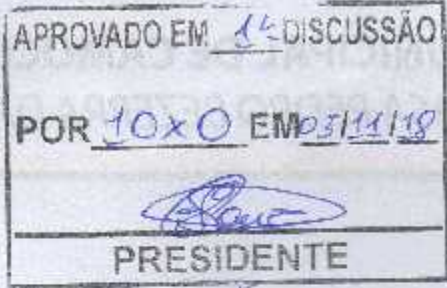 APROVADO EM 1ª DISCUSSÃO
POR 10x0 EM 03/11/18
PRESIDENTE